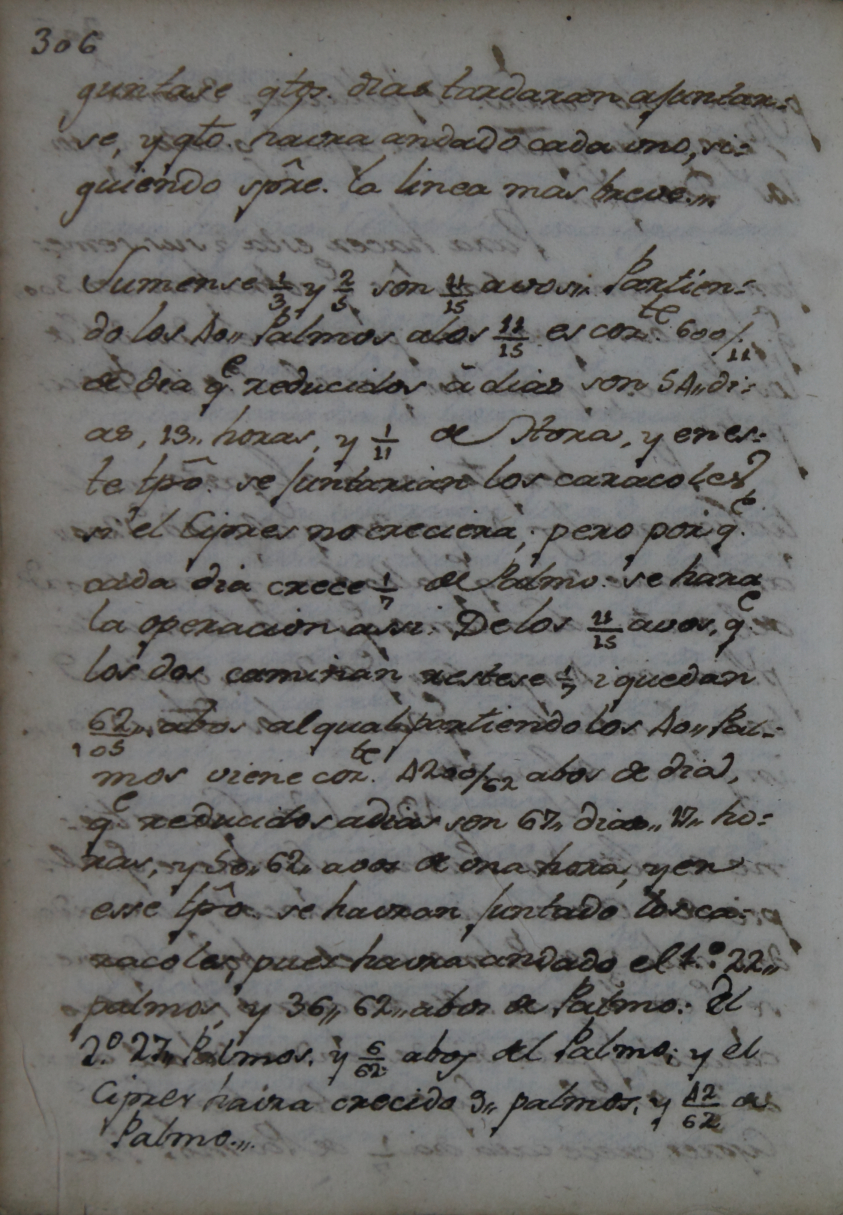 306
guntase qtos. dias tardaran a juntar-
se, y qto. havra andado cada uno, si-
guiendo spre. la linea mas breve.,,
Sumense 1/3, y 2/5 son 11/15 avos,, Partien-
do los 40,, Palmos a los 11/15 es corte. 600/11
de dia qe reducidos à dias son 54,, di-
as, 13,, horas, y 1/11 de Hora, y en es-
te tpô. se juntarian los caracoles
si el Cipres no creciera; pero por qe.
cada dia crece 1/7 de Palmo. se hara
la operacion assi. De los 11/15 avos, qe
los dos caminan restese 1/7 i quedan
62/105,, abos al qual partiendo los 40,, Pal-
mos viene corte. 4200/62 abos de dia,
qe reducidos a dias son 67,, dias,, 17,, ho-
ras, y 50,, 62,, avos de una hora, y en
esse tpô. se havran juntado los ca-
racoles, pues havra andado el 1.º 22,,
palmos, y 36,, 62,, abos de Palmo: El
2.º 27,, Palmos, y 6/62 abos del Palmo; y el
Cipres havra crecido 9,, palmos, y 42/62 de
Palmo.,,